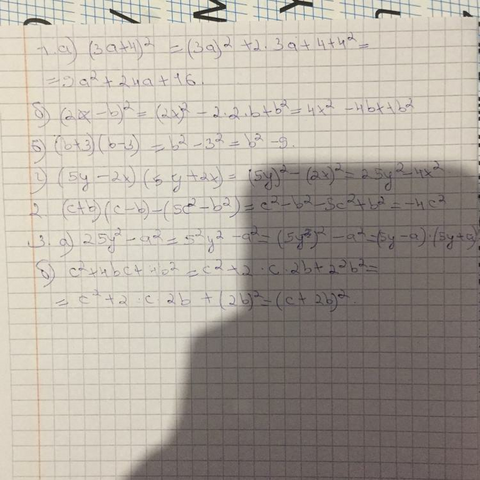 1. а) (3a+4)² = (3a)² + 2·3a+4+4² =
= 9a² + 24a + 16.
б) (2x – b)² = (2x)² – 2·2·b+b² = 4x² – 4b+b²
в) (b+3)(b–3) = b² – 3² = b² – 9.
г) (5y – 2x)(5y+2x) = (5y)² – (2x)² = 25y² – 4x²
2. (c+b)(c–b)–(5c²–b²) = c²–b²–5c²+b² = –4c²
3. а) 25y² – a² = 5²y² – a² = (5y)² – a² = (5y–a)·(5y+a)
б) c²+4bc+4b² = c²+2·c·2b+2²b² =
= c²+2·c·2b + (2b)² = (c+2b)²